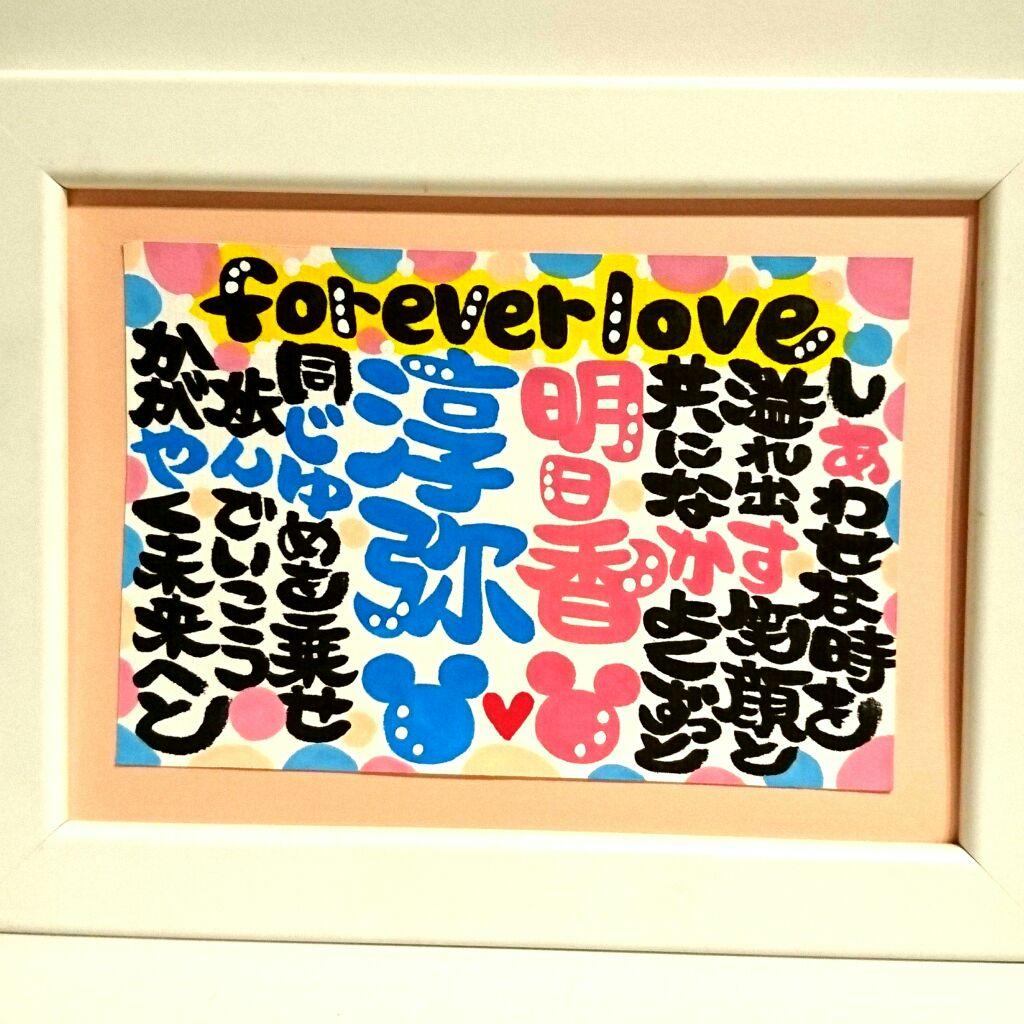 forever love
しあわせな時を
溢れ出す笑顔と
共になかよくずっと
明日香
淳弥
同じゆめを乗せ
歩んでいこう
かがやく未来へと